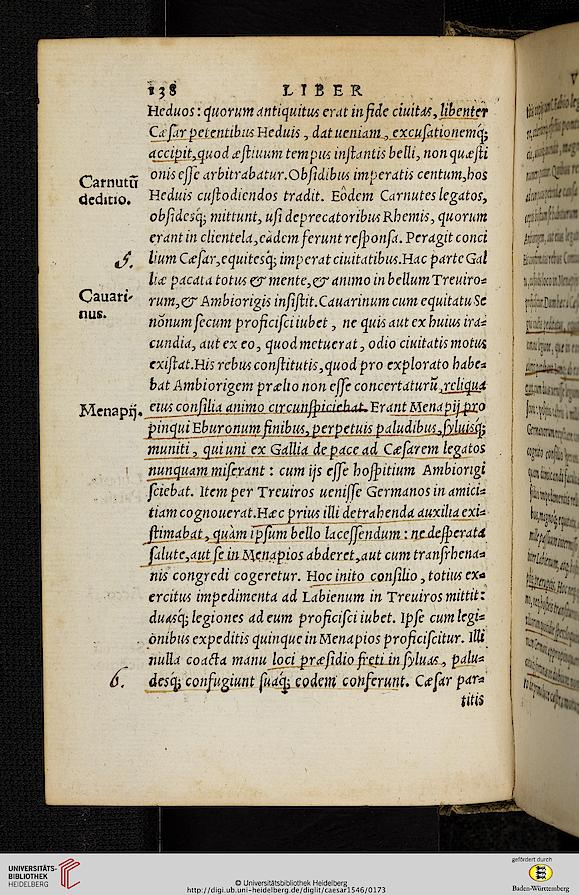 138 LIBER
Heduos: quorum antiquitus erat in fide ciuitas, libenter
Cæsar petentibus Heduis, dat ueniam, excusationemq́;
accipit, quod æstiuum tempus instantis belli, non quæsti
onis esse arbitrabatur. Obsidibus imperatis centum, hos
Carnutū
dediſtio.
Heduis custodiendos tradit. Eòdem Carnutes legatos,
obsidesq́; mittunt, usi deprecatoribus Rhemis, quorum
erant in clientela, eadem ferunt responsa. Peragit conci
5.
lium Cæsar, equitesq́; imperat ciuitatibus. Hac parte Gal
liæ pacata totus & mente, & animo in bellum Treuiro=
Cauari-
nus.
rum, & Ambiorigis insistit. Cauarinum cum equitatu Se
nonum secum proficisci iubet, ne quis aut ex huius ira=
cundia, aut ex eo, quod metuerat, odio ciuitatis motus
existat. His rebus constitutis, quod pro explorato habe=
bat Ambiorigem prælio non esse concertaturū, reliqua
Menapij.
eius consilia animo circunspiciebat. Erant Menapij pro
pinqui Eburonum finibus, perpetuis paludibus, syluisq́;
muniti, qui uni ex Gallia de pace ad Cæsarem legatos
nunquam miserant: cum ijs esse hospitium Ambiorigi
sciebat. Item per Treuiros uenisse Germanos in amici=
tiam cognouerat. Hæc prius illi detrahenda auxilia exi=
stimabat, quàm ipsum bello lacessendum: ne desperata
salute, aut se in Menapios abderet, aut cum transrhena=
nis congredi cogeretur. Hoc inito consilio, totius ex=
ercitus impedimenta ad Labienum in Treuiros mittit:
duasq́; legiones ad eum proficisci iubet. Ipse cum legi=
onibus expeditis quinque in Menapios proficiscitur. Illi
nulla coacta manu loci præsidio freti in syluas, palu=
6.
desq́; confugiunt suaq́; eodem conferunt. Cæsar par=
titis
UNIVERSITÄTS-
BIBLIOTHEK
HEIDELBERG
© Universitätsbibliothek Heidelberg
http://digi.ub.uni-heidelberg.de/diglit/caesar1546/0173
gefördert durch
Baden-Württemberg